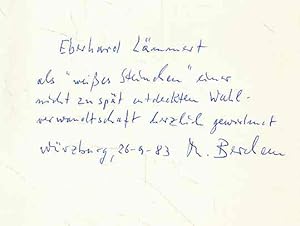 Eberhard Lämmert
als "weißes Steinchen" einer
nicht zu spät entdeckten Wahl-
verwandtschaft herzlich gewidmet
Würzburg, 26-9-83 M. Berchem